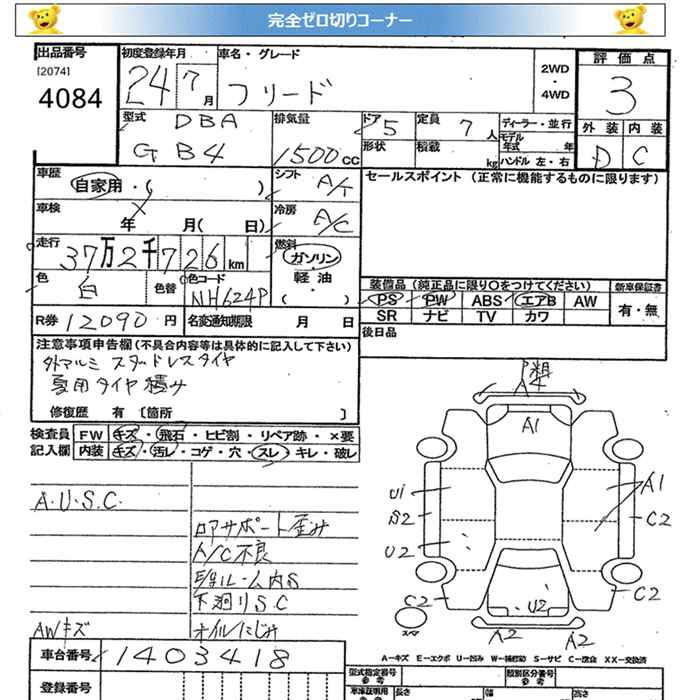 完全ゼロ切りコーナー
出品番号 [2074] 4084
初度登録年月 24 7月
車名・グレード フリード
2WD・4WD
評価点 3
外装 D 内装 C
型式 DBA GB4
排気量 1500cc
ドア 5 形状
定員 7人 積載 kg
ディーラー・並行
モデル年式 年
ハンドル 左・右
車歴 自家用・( )
シフト A/T
セールスポイント (正常に機能するものに限ります)
車検 年 月( 日)
冷房 A/C
走行 37万2千726km
燃料 ガソリン・軽油・( )
色 白 色替 色コード NH624P
装備品 (純正品に限り〇をつけてください) 新車保証書
PS PW ABS エアB AW 有・無
SR ナビ TV カワ
R券 12090円 名変通知期限 月 日
後日品
注意事項申告欄(不具合内容等は具体的に記入して下さい)
外アルミ スタッドレスタイヤ
夏用タイヤ積み
修復歴 有 〔箇所 〕
検査員 FW キズ・飛石・ヒビ割・リペア跡・×要
記入欄 内装 キズ・汚レ・コゲ・穴・スレ・キレ・破レ
A4
A1
A1
U1
S2
C2
U2
C2
C2
U2
A2
A2
スペア
A.U.S.C.
コアサポート歪み
A/C不良
下廻りS.C
AWキズ オイルにじみ
A-キズ E-エクボ U-凹み W-補修跡 S-サビ C-腐食 XX-交換済
車台番号 1403418
型式指定番号 参考 類別区分番号 参考
登録番号
車庫証明用 長さ 幅 高さ